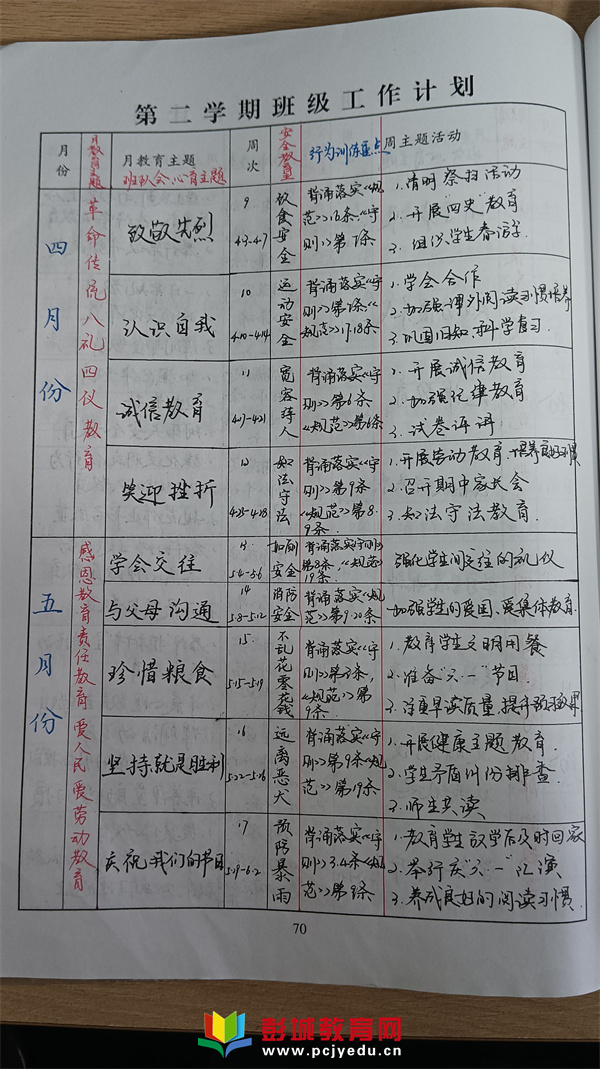 第二学期班级工作计划
月份
月教育主题
月教育主题
班队会、心育主题
周次
安全教育
行为训练重点
周主题活动
四月份
革命传统 八礼四仪教育
致敬先烈
9
4.3-4.7
饮食安全
背诵落实《规
范》16条《守
则》第7条
1.清明祭扫活动
2.开展“四史”教育
3.组织学生春游
认识自我
10
4.10-4.14
运动安全
背诵落实《守
则》第7条《
规范》17.18条
1.学会合作
2.加强课外阅读习惯培养
3.巩固旧知,科学复习.
诚信教育
11
4.17-4.21
宽容待人
背诵落实《守
则》第6条
《规范》第6条
1.开展诚信教育
2.加强纪律教育
3.试卷评讲
笑迎挫折
12
4.23-4.28
知法守法
背诵落实《守
则》第9条
《规范》第8.
9条
1.开展劳动教育,培养良好习惯
2.召开期中家长会
3.知法守法教育.
五月份
感恩教育 责任教育 爱人民 爱劳动教育
学会交往
13.
5.4-5.6
安全
背诵落实《守则》
第8条,《规范》
19条
强化学生间交往的礼仪
与父母沟通
14
5.8-5.12
消防安全
背诵落实《规
范》第9.20条
加强学生的爱国、爱集体教育.
珍惜粮食
15.
5.15-5.19
不乱花零花钱
背诵落实《守
则》第3条,
《规范》第
9条
1.教育学生文明用餐
2.准备“六一”节目.
3.注重早读质量,提升预习效果
坚持就是胜利
16
5.22-5.26
远离恶犬
背诵落实《守
则》第9条《规
范》第19条
1.开展健康主题教育.
2.学生矛盾纠纷排查.
3.师生共读
庆祝我们的节日
17
5.29-6.2
预防暴雨
背诵落实《守
则》3.4条《规
范》第8条
1.教育学生放学后及时回家
2.举行庆“六一”汇演
3.养成良好的阅读习惯.
70
彭城教育网
www.pcjyedu.cn